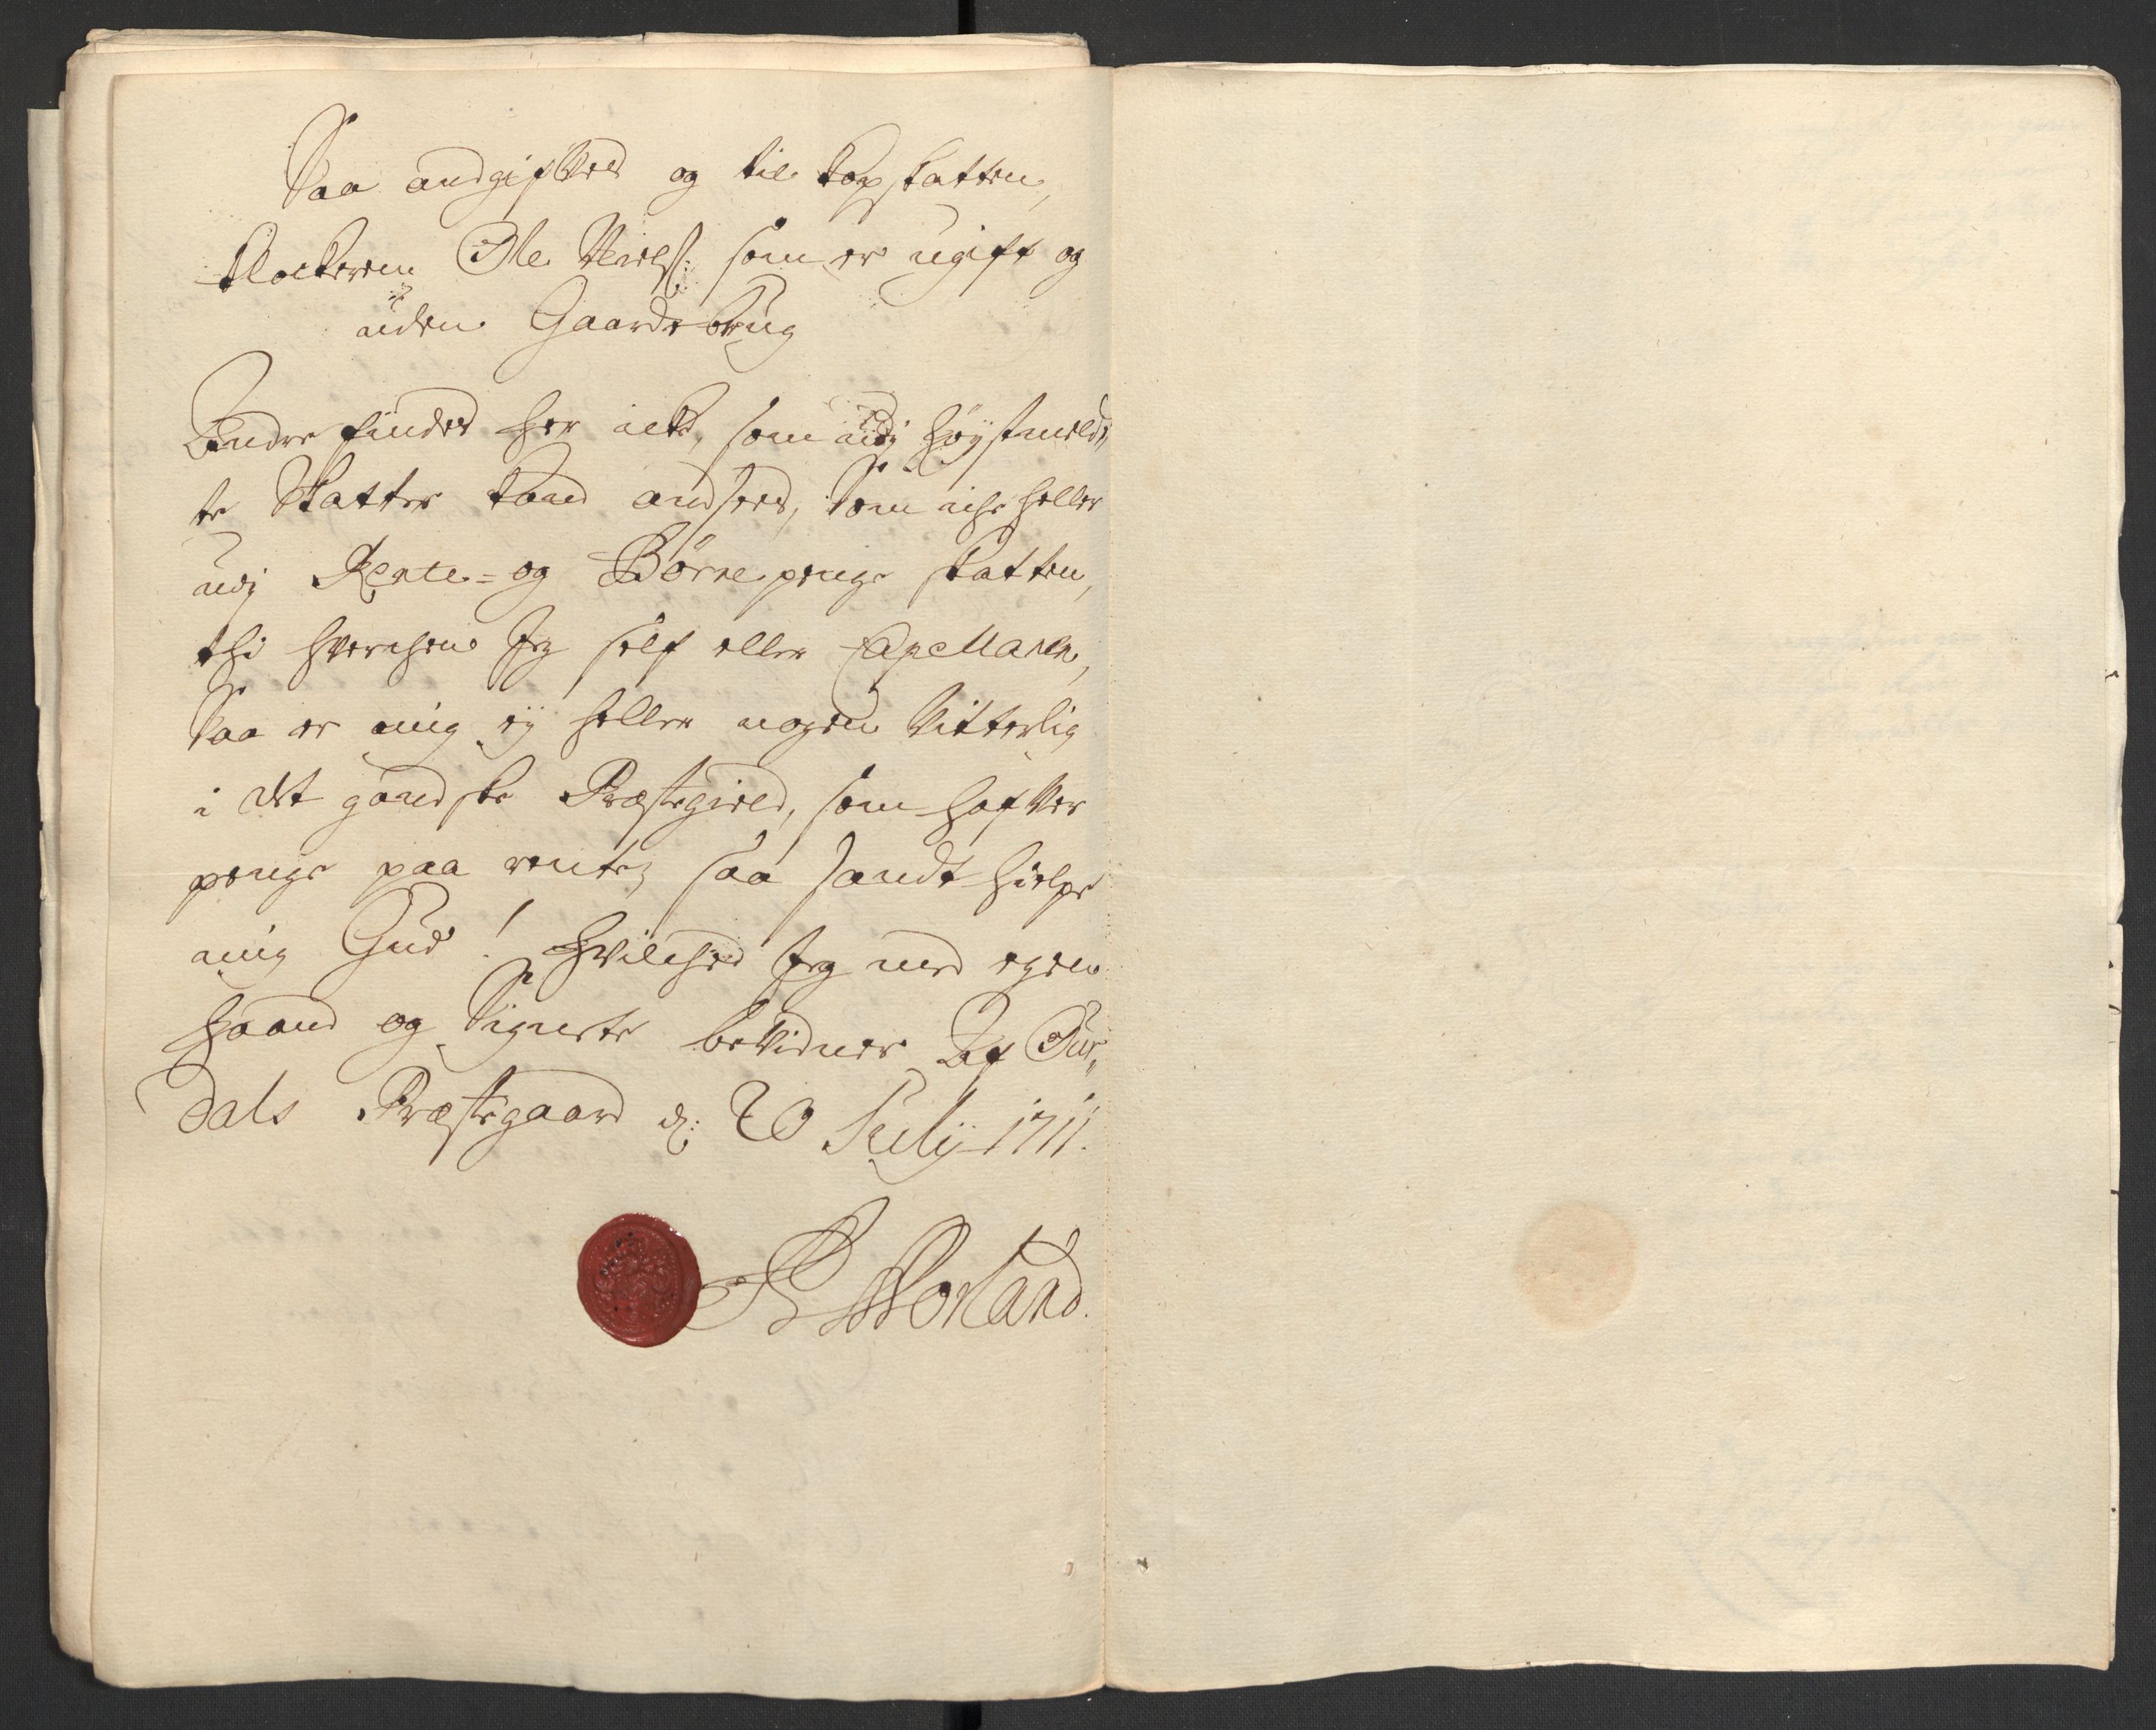 Saa andgifves og til Kopskatten,
Klockeren Ole Nielsß: som er ugift og
uden Gaardebrug
Andre findes her icke, som udj höÿstmeld„
te Skatter kand ansees, Som iche heller
udj Rente- og Börne penge skatten,
thi hverchen Jeg self eller Capellanen,
Saa er mig eÿ heller nogen Vitterlig
i det gandske Præstegield, som hafver
penge paa rente, saa sandt hielpe
mig Gud! Hvilchet Jeg med egen
haand og Signete bevidner Af Sur„
dals Præstegaard d: 20 Julij 1711.